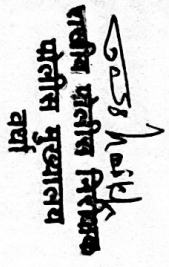 राखीव पोलीस निरीक्षक
पोलीस मुख्यालय
वर्धा